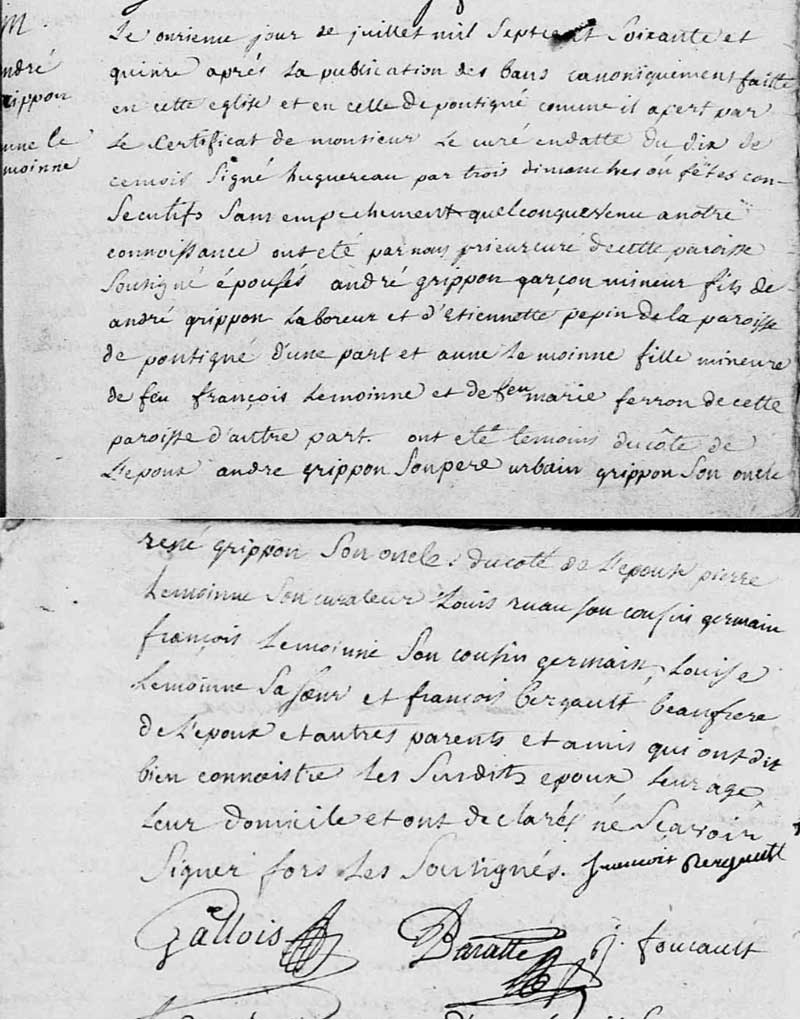 M.
ndré
rippon
nne le
moinne
Le onzieme jour de juillet mil Septcent Soixante et
quinze aprés La publication des bans canoniquement faitte
en cette eglise et en celle de pontigné comme il apert par
Le Certificat de monsieur Le curé endatte du dix de
cemois Signé huguereau par trois dimanches où fêtes con-
Secutifs Sans empechement quelconque venu a notre
connoissance ont eté par nous prieur curé de cette paroisse
Sousigné épousés andré grippon garçon mineur fils de
andré grippon Laboreur et d'Etiennette pepin de la paroisse
de pontigné d'une part et anne Le moinne fille mineure
de feu françois Lemoinne et de feu marie ferron de cette
paroisse d'autre part. ont eté temoins du côte de
L'epoux andre grippon Son pere urbain grippon Son oncle
rené grippon Son oncle, du coté de L'epoux pierre
Lemoinne Son curateur Louis ruau son cousin germain
françois Lemoinne Son cousin germain, Louise
Lemoinne Sa Sœur et francois bergault beaufrere
de L'epoux et autres parents et amis qui ont dit
bien connoistre Les Susdits epoux, Leur age,
Leur domicile et ont declarés ne Sçavoir
Signer fors Les Sousignés. francois Bergault
Gallois Baratte j. foucault